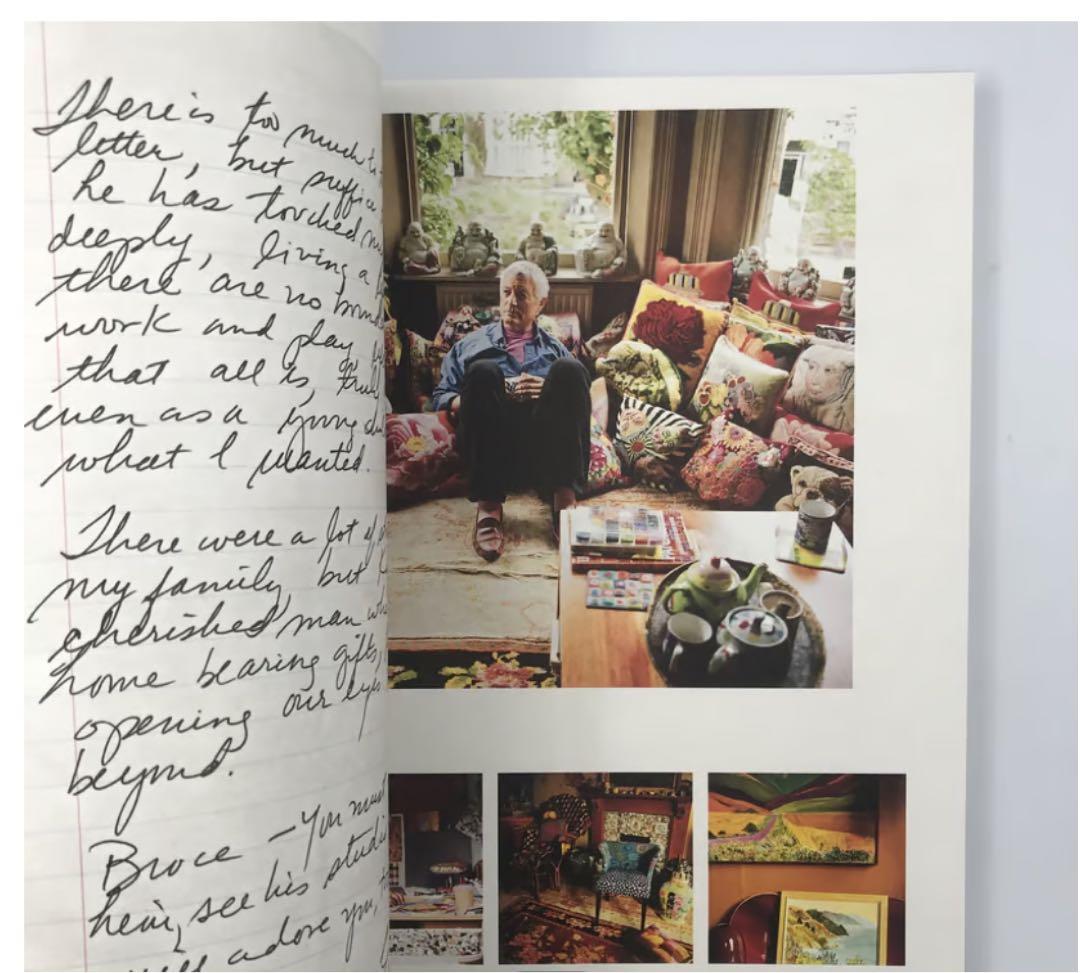 There is too much to
letter, but suffice
he has touched my
deeply, living a
there are no bound
work and play
that all is, tru
even as a young
what I wanted.
There were a lot of
my family, but
cherished man who
home bearing gifts,
opening our eyes
beyond.
Bruce – You must
him, see his studi
adore you,